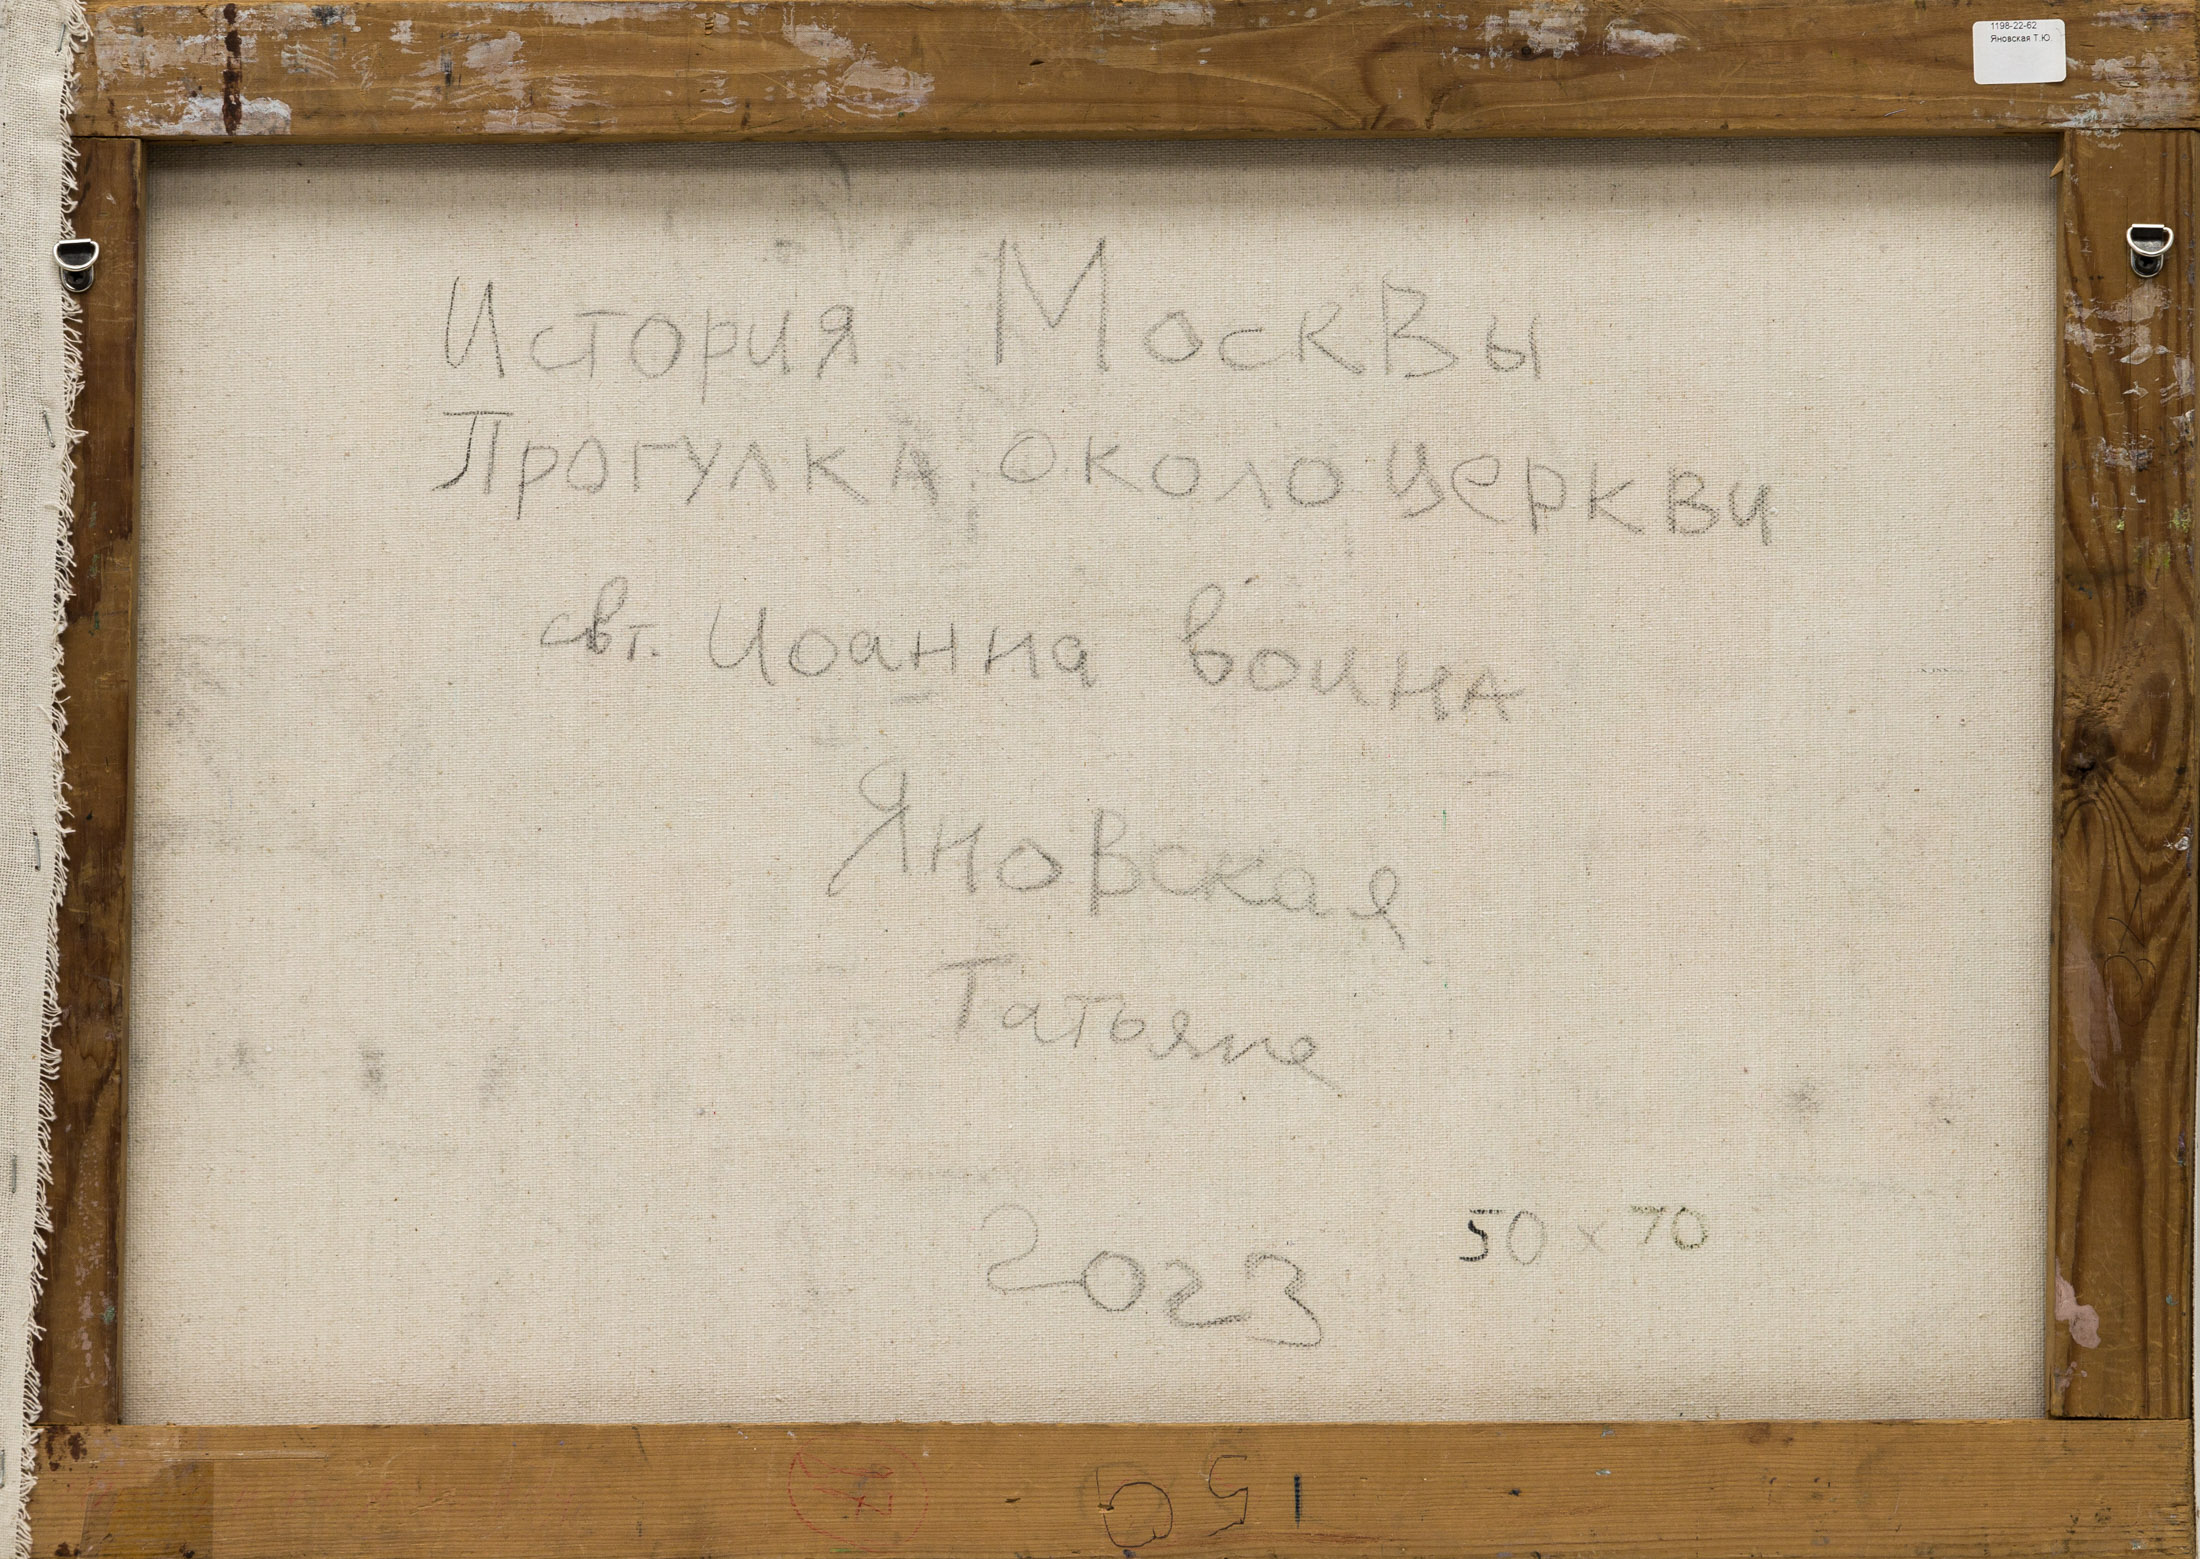 1198-22-62
Яновская Т.Ю.
История Москвы
Прогулка около церкви
свт. Иоанна воина
Яновская
Татьяна
2023
50 x 70